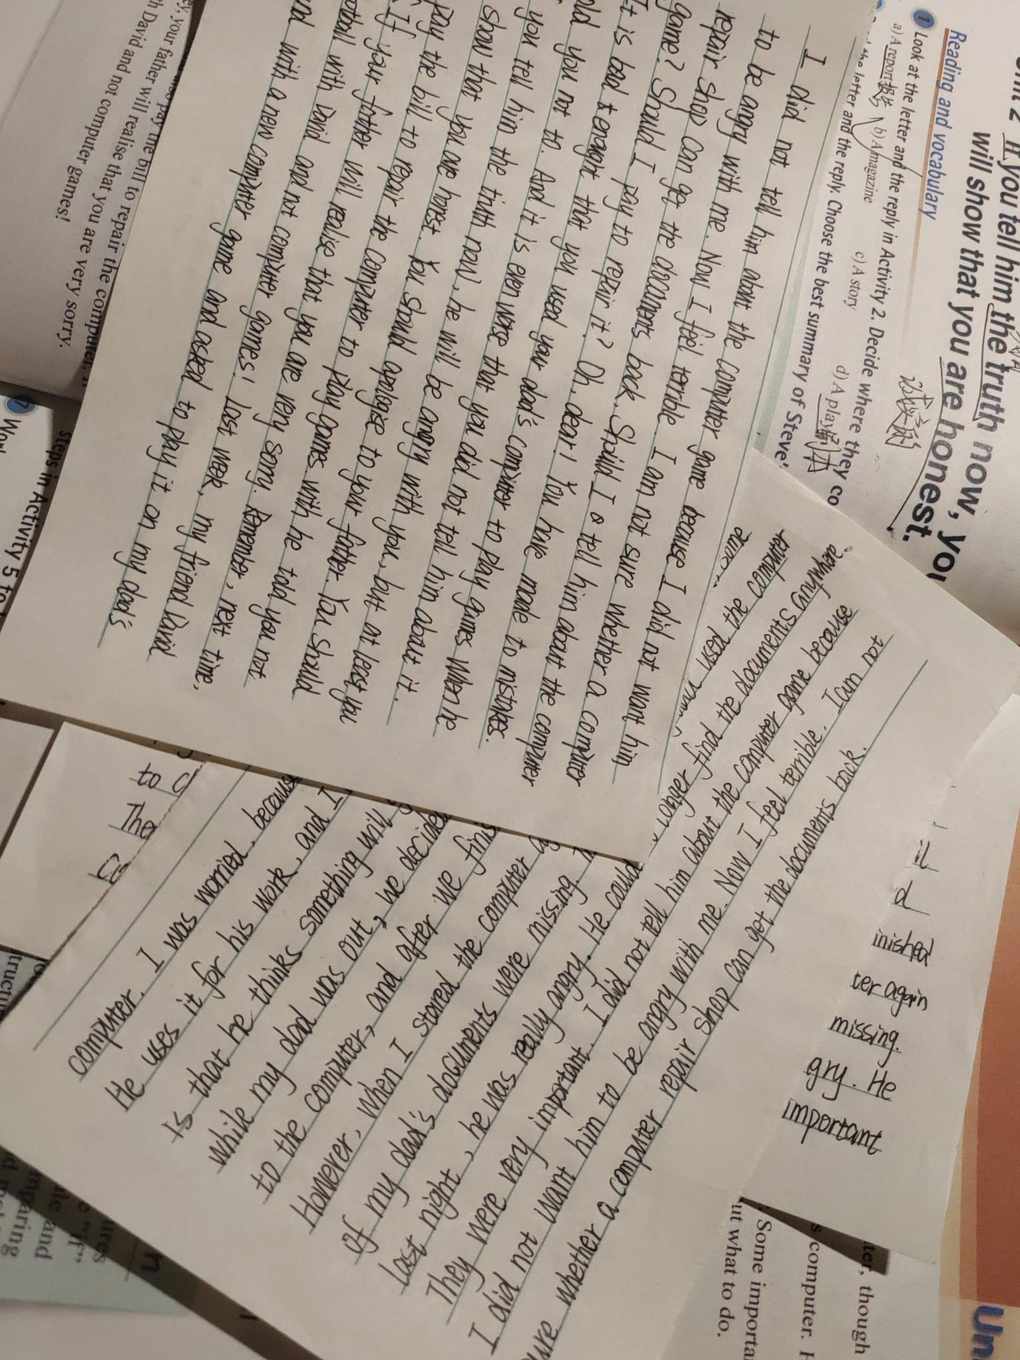 Unit 2 If you tell him the truth now, you
will show that you are honest.
Reading and vocabulary
1 Look at the letter and the reply in Activity 2. Decide where they co
a) A report b) A magazine c) A story d) A play 剧本
the letter and the reply. Choose the best summary of Steve'
I did not tell him about the computer game because I did not want him
to be angry with me. Now I feel terrible. I am not sure whether a computer
repair shop can ge the documents back. Should I o tell him about the computer
game? Should I pay to repair it? Oh, dear! You have made to mistakes.
It is bad enought that you used your dad's computer to play games when he
told you not to. And it is even worse that you did not tell him about it.
If you tell him the truth now, he will be angry with you, but at least you
show that you are honest. You should apologise to your father. You should
pay the bill to repair the computer to play games with he told you not
. If your father will realise that you are very sorry. Remember, next time,
football with David and not computer games! Last week, my friend David
and with a new computer game and asked to play it on my dad's
pay the bill to repair the computer.
ey, your father will realise that you are very sorry.
h David and not computer games!
steps in Activity 5 to
to c
The
computer. I was worried, because
He uses it for his work, and I
is that he thinks something will
while my dad was out, we decide
to the computer, and after we fini
However, when I stared the computer
of my dad's documents were missing
Last night, he was really angry. He could longer find the documents anywhere
They were very important. I did not tell him about the computer game because
I did not want him to be angry with me. Now I feel terrible. I am not
ure whether a computer repair shop can get the documents back.
used the computer
it
d
inished
ter again
missing.
gry. He
important
ter, though
s computer. H
. Some importa
ut what to do.
Un